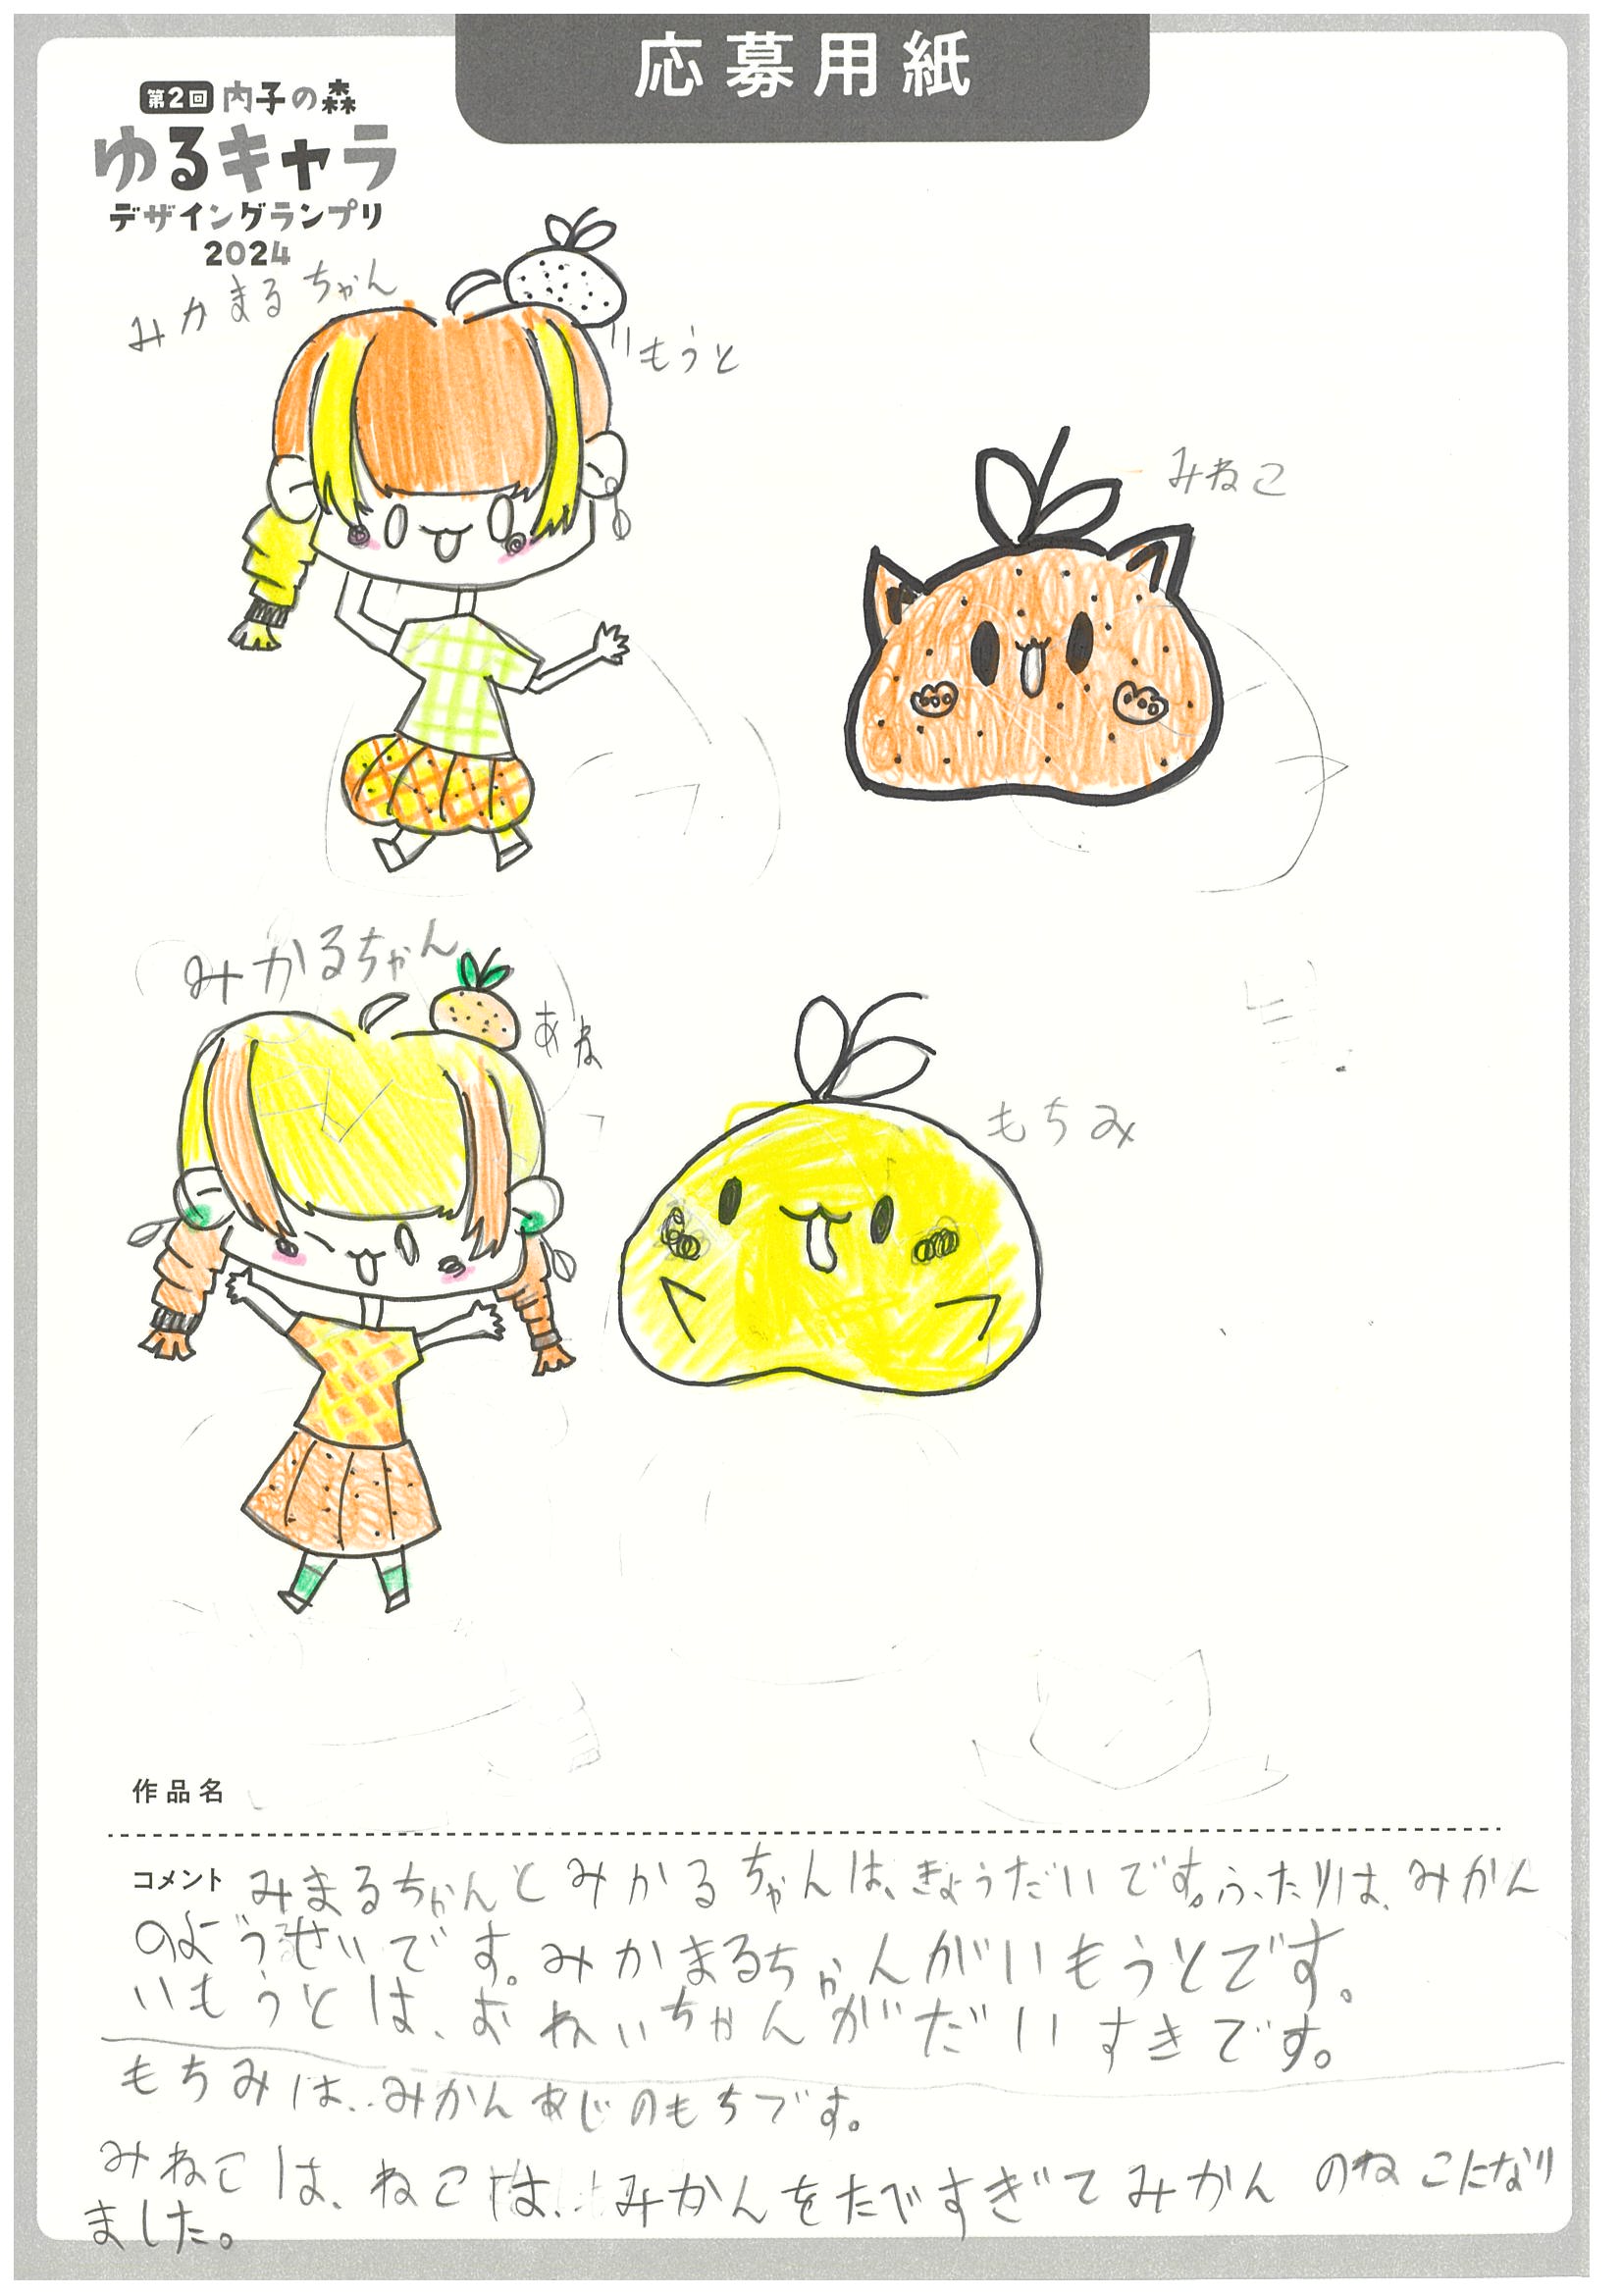 応募用紙
第2回 内子の森
ゆるキャラ
デザイングランプリ
2024
みかまるちゃん
いもうと
みねこ
みかるちゃん
あね
もちみ
作品名
コメント みまるちゃんとみかるちゃんは、きょうだいです。ふたりは、みかん
のようせいです。みかまるちゃんがいもうとです。
いもうとは、おねいちゃんがだいすきです。
もちみは、みかんあじのもちです。
みねこは、ねこは、みかんをたべすぎてみかんのねこになり
ました。